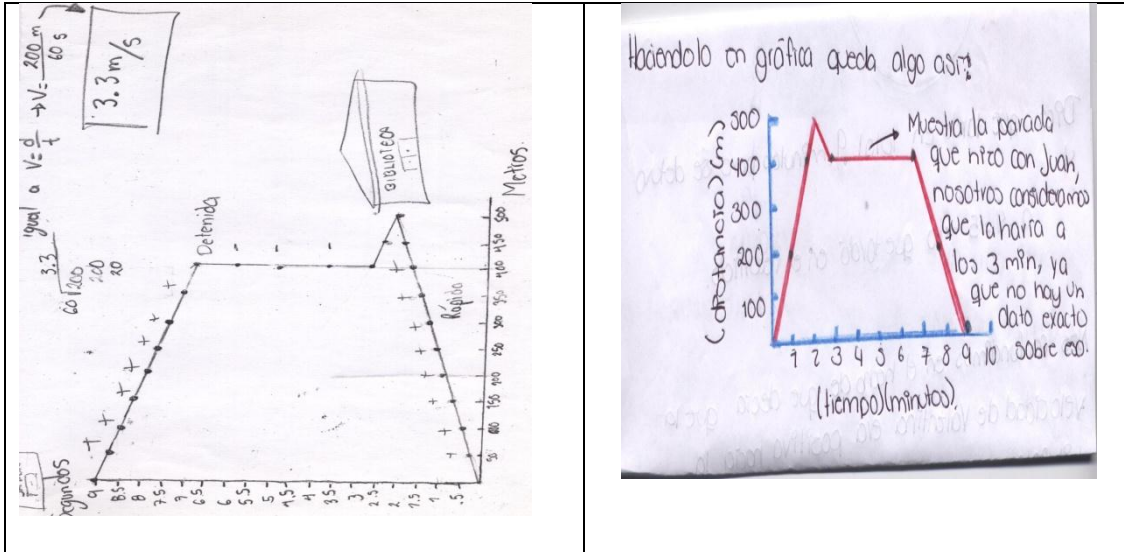 igual a V= d/t → V= 200 m/60 s
3.3 m/s
3.3
60 200
200
20
Detenida
BIBLIOTECA
Rápido
9
8.5
8
7.5
7
6.5
6
5.5
5
4.5
4
3.5
3
2.5
2
1.5
1
.5
50 100 150 200 250 300 350 400 450 500
Metros.
Haciendolo en gráfica queda algo así:
(distancia) (m)
500
400
300
200
100
1 2 3 4 5 6 7 8 9 10
(tiempo)(minutos)
Muestra la parada
que hizo con Juan,
nosotros consideramos
que la haría a
los 3 min, ya
que no hay un
dato exacto
sobre eso.